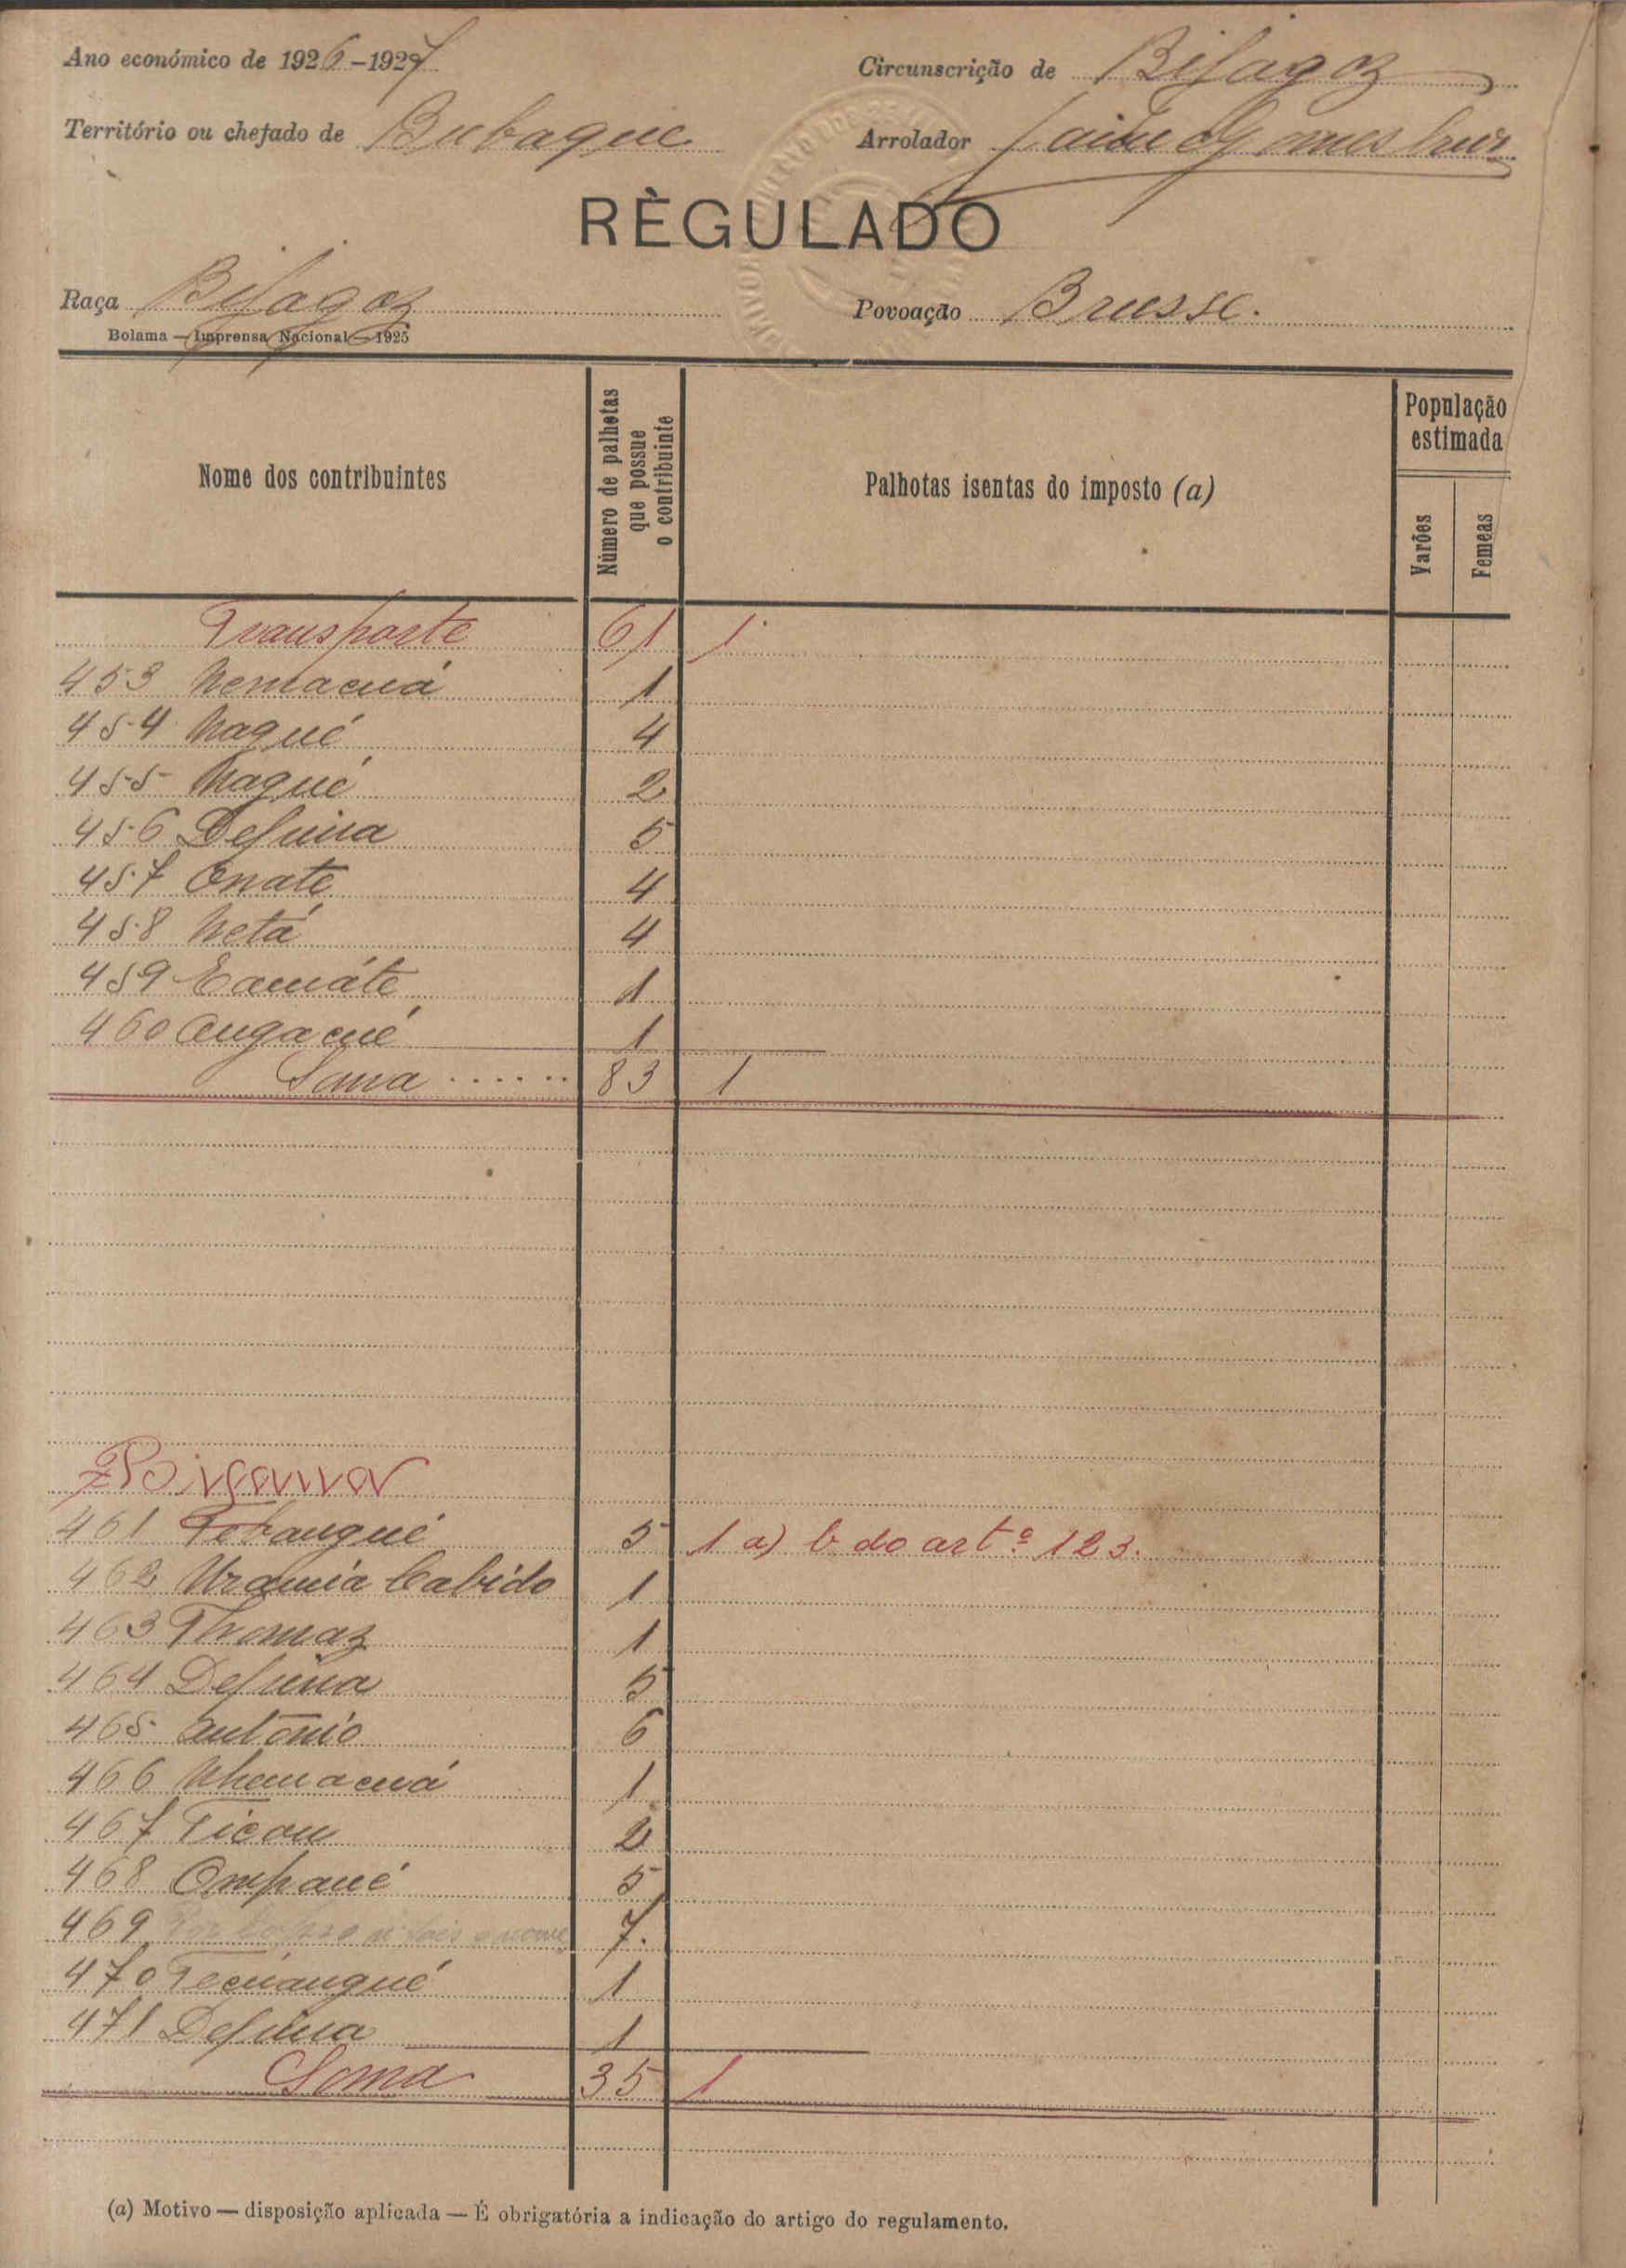 Ano económico de 1926-1927
Circunscrição de Bijagoz
Território ou chefado de Bubaque
Arrolador Jaime Gomes
RÈGULADO
Raça Bijagoz
Povoação Brusse.
Bolama — Imprensa Nacional — 1925
Nome dos contribuintes
Número de palhotas que possue o contribuinte
Palhotas isentas do imposto (a)
População estimada
Varões
Femeas
Transporte 61 1
453 Nemacuá 1
454 Naqué 4
455 Naqué 2
456 Defuina 5
457 Onate 4
458 Netá 4
459 Eamáte 1
460 Augacué 1
Soma ...... 83 1
461 Tebangué 5 1 a) b do artº 123.
462 Uramia Cabido 1
463 Thomaz 1
464 Defuna 5
465 António 6
466 Nhemacuá 1
467 Ticou 2
468 Ompané 5
469 7.
470 Tecuangué 1
471 Defuna 1
Soma 35 1
(a) Motivo — disposição aplicada — É obrigatória a indicação do artigo do regulamento.